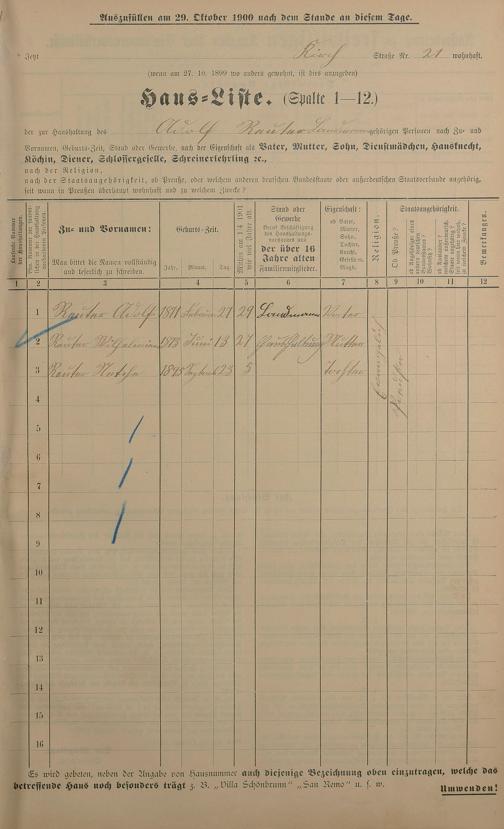 Auszufüllen am 29. Oktober 1900 nach dem Stande an diesem Tage.
Jetzt Kirch Straße Nr. 21 wohnhaft.
(wenn am 27. 10. 1899 wo anders gewohnt, ist dies anzugeben)
Haus-Liste. (Spalte 1—12.)
der zur Haushaltung des Adolf Rauter Landmann gehörigen Personen nach Zu- und
Vornamen, Geburts-Zeit, Stand oder Gewerbe, nach der Eigenschaft als Vater, Mutter, Sohn, Dienstmädchen, Hausknecht,
Köchin, Diener, Schlossergeselle, Schreinerlehrling ꝛc.,
nach der Religion,
nach der Staatsangehörigkeit, ob Preuße, oder welchem anderen deutschen Bundesstaate oder außerdeutschen Staatsverbande angehörig,
seit wann in Preußen überhaupt wohnhaft und zu welchem Zwecke?
Zu- und Vornamen:
Man bittet die Namen vollständig
und leserlich zu schreiben.
Geburts-Zeit.
Jahr. Monat. Tag.
Stand oder
Gewerbe
der über 16
Jahre alten
Familienmitglieder.
Eigenschaft:
ob Vater,
Mutter,
Sohn,
Tochter,
Knecht,
Geselle,
Magd.
Religion.
Staatsangehörigkeit.
Ob Preuße?
Bemerkungen.
1 2 3 4 5 6 7 8 9 10 11 12
1 Rauter Adolf 1871 Februar 21 29 Landmann Vater
2 Rauter Wilhelmine 1873 Juni 13 27 Haushaltung Mutter
3 Rauter 1895 Septemb 23 5 Tochter
evangelisch
Preußen
4
5
6
7
8
9
10
11
12
13
14
15
16
Es wird gebeten, neben der Angabe von Hausnummer auch diejenige Bezeichnung oben einzutragen, welche das
betreffende Haus noch besonders trägt z. B. „Villa Schönbrunn" „San Remo" u. s. w.
Umwenden!